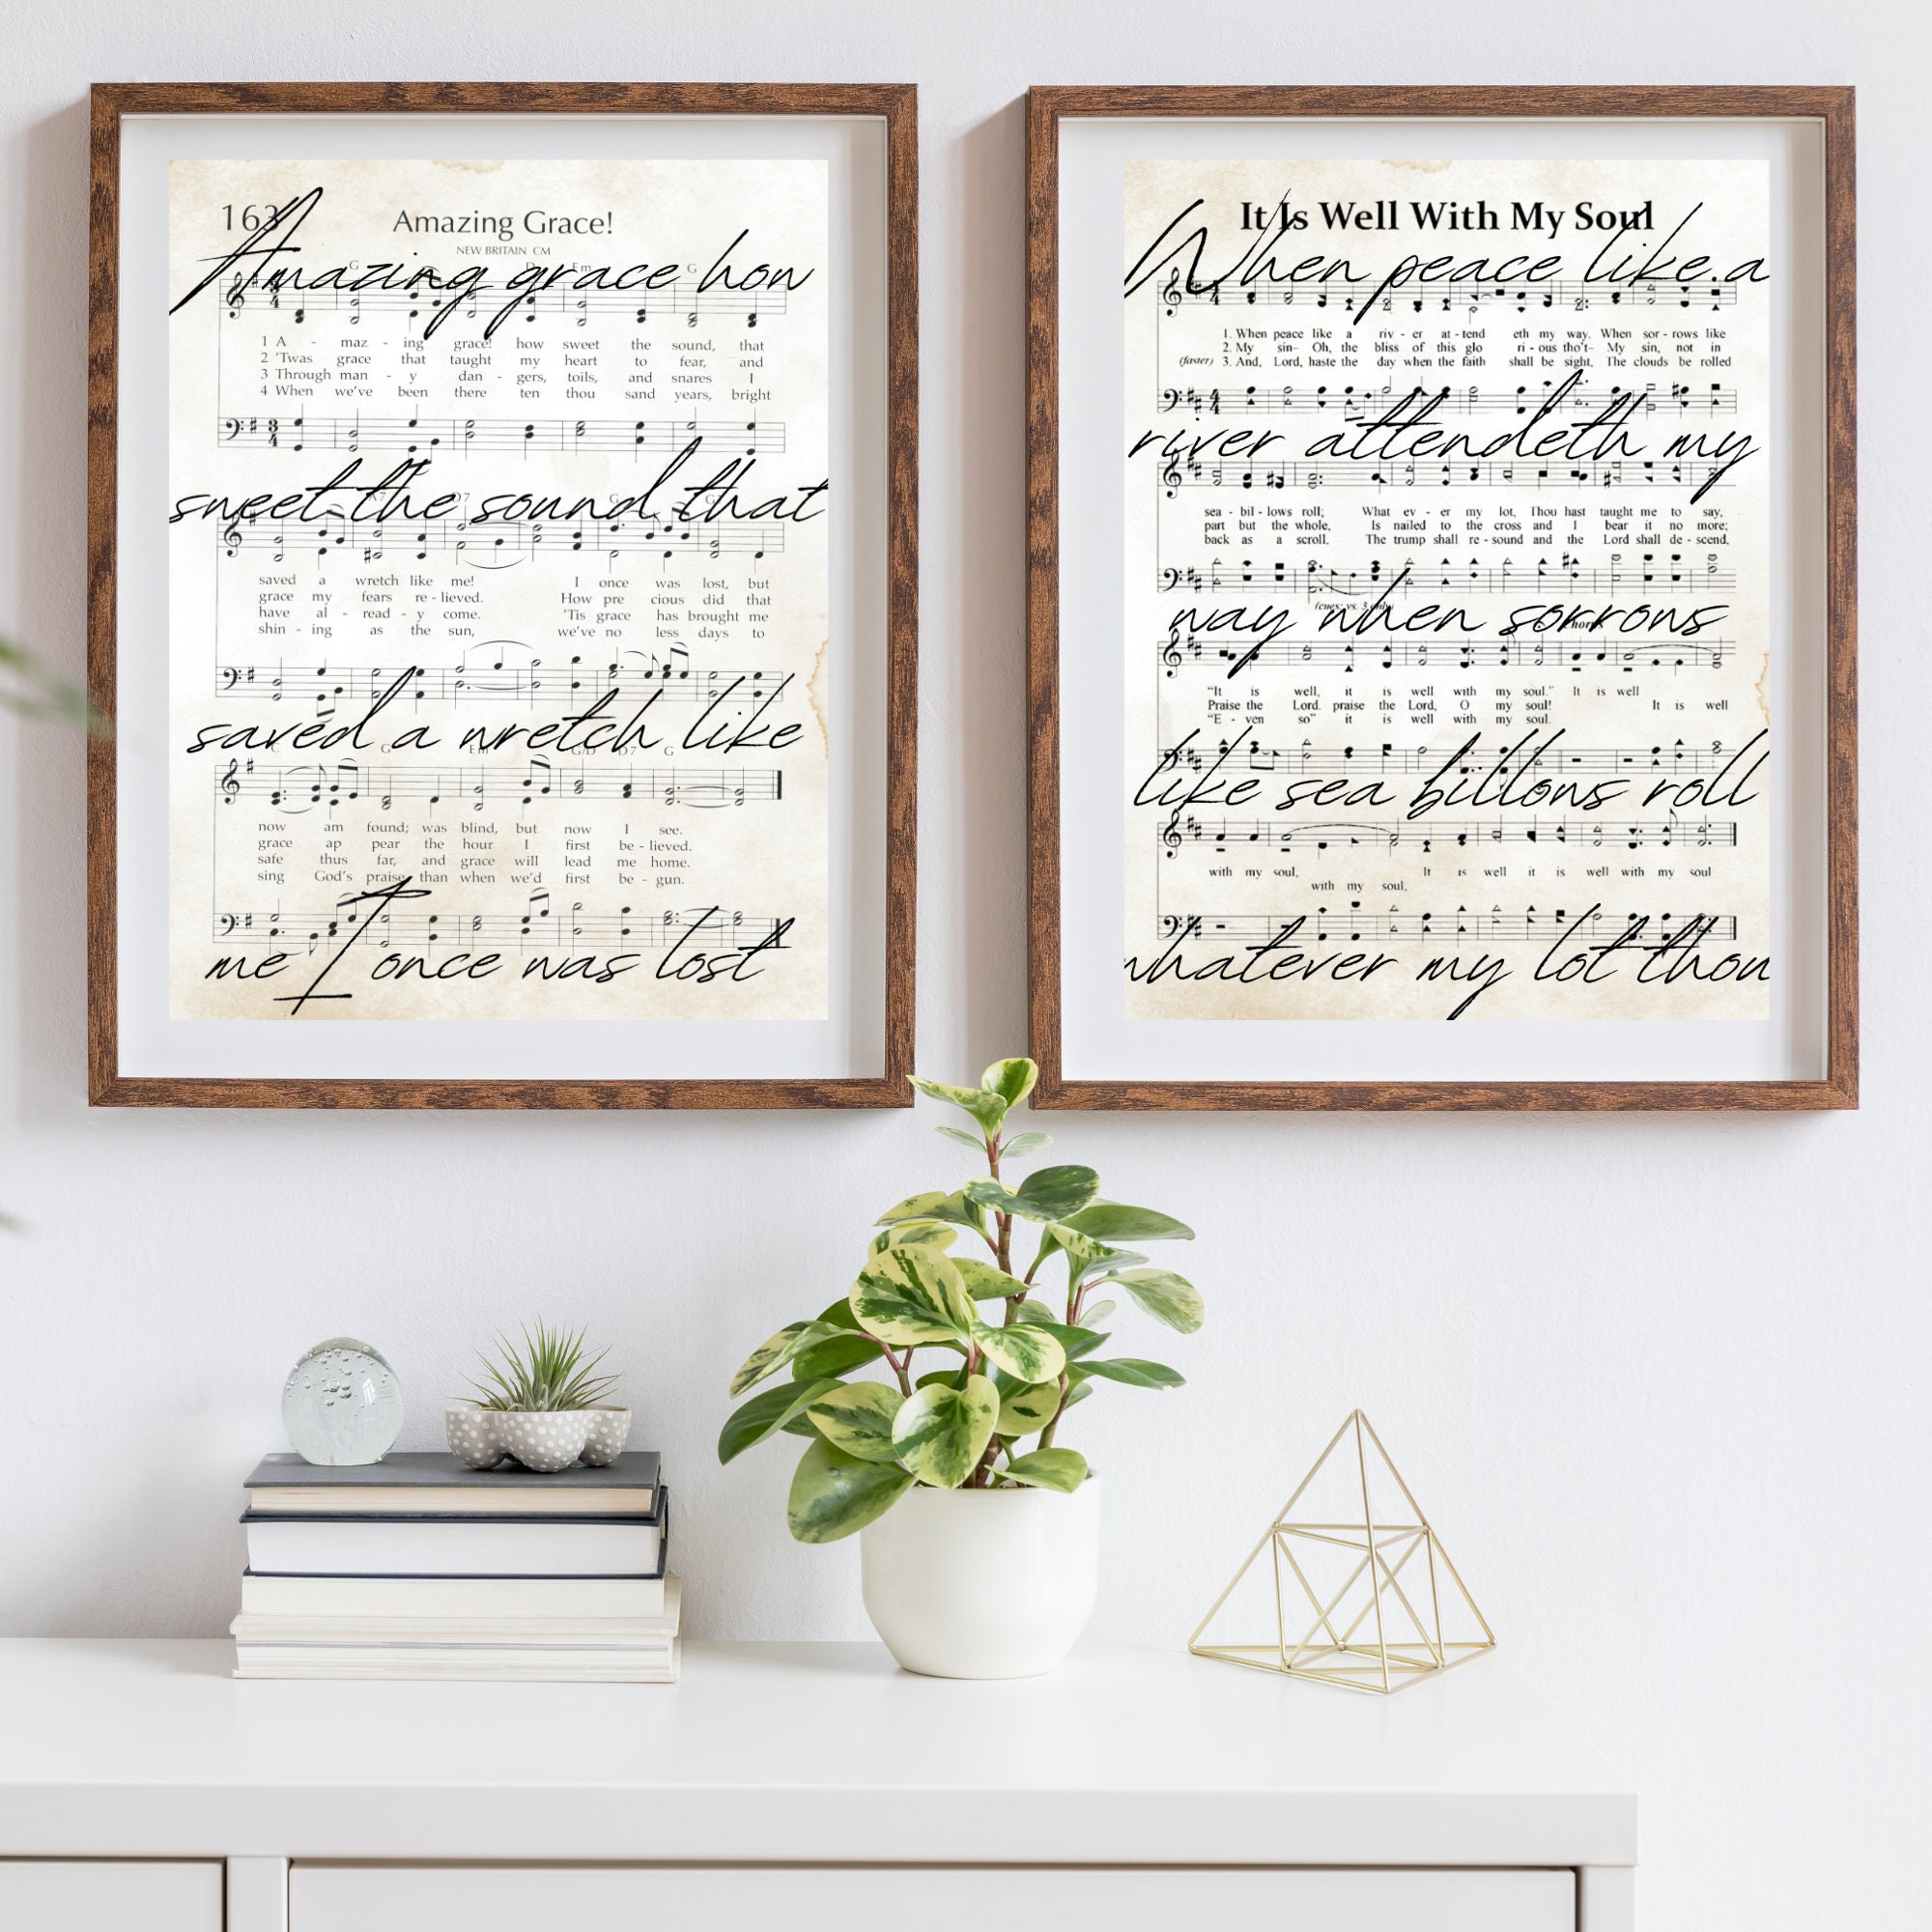 163
Amazing Grace!
NEW BRITAIN CM
Amazing grace how
1 A - maz - ing grace! how sweet the sound, that
2 'Twas grace that taught my heart to fear, and
3 Through man - y dan - gers, toils, and snares I
4 When we've been there ten thou sand years, bright
sweet the sound that
saved a wretch like me! I once was lost, but
grace my fears re - lieved. How pre cious did that
have al - read - y come. 'Tis grace has brought me
shin - ing as the sun, we've no less days to
saved a wretch like
now am found; was blind, but now I see.
grace ap pear the hour I first be - lieved.
safe thus far, and grace will lead me home.
sing God's praise than when we'd first be - gun.
me I once was lost
It Is Well With My Soul
When peace like a
1. When peace like a riv - er at - tend eth my way, When sor - rows like
2. My sin- Oh, the bliss of this glo ri - ous tho't- My sin, not in
(faster) 3. And, Lord, haste the day when the faith shall be sight, The clouds be rolled
river attendeth my
sea - bil - lows roll; What ev - er my lot, Thou hast taught me to say,
part but the whole, Is nailed to the cross and I bear it no more;
back as a scroll, The trump shall re - sound and the Lord shall de - scend,
(cues: vs. 3 only)
way when sorrows
"It is well, it is well with my soul." It is well
Praise the Lord. praise the Lord, O my soul! It is well
"E - ven so" it is well with my soul.
like sea billows roll
with my soul, It is well it is well with my soul
with my soul,
whatever my lot thou